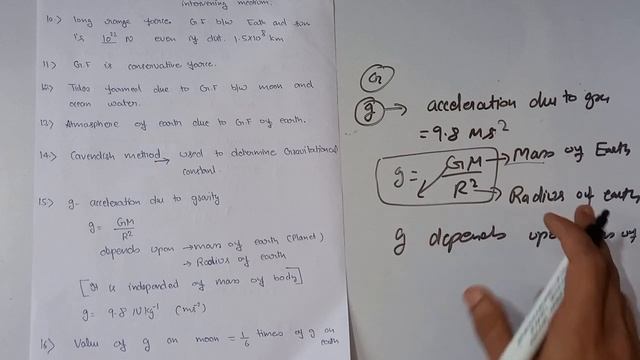 intervening medium.
10.) long range force. G.F b/w Eath and sun
is 10²² N even if dist. 1.5×10⁸ km
11) G.F is conservative force.
12) Tides formed due to G.F b/w moon and
ocean water.
13) Atmosphere of earth due to G.F of earth.
14.) Cavendish method → used to determine Gravitational
constant.
15) g - acceleration due to gravity
g = GM/R²
depends upon → mass of earth (Planet)
→ Radius of earth
[It is independ of mass of body]
g = 9.8 N kg⁻¹ (ms⁻²)
16) Value of g on moon = 1/6 times of g on
earth
G
g → acceleration due to
= 9.8 ms²
g = GM/R² → Mass of Earth
→ Radius of earth
g depends upon of